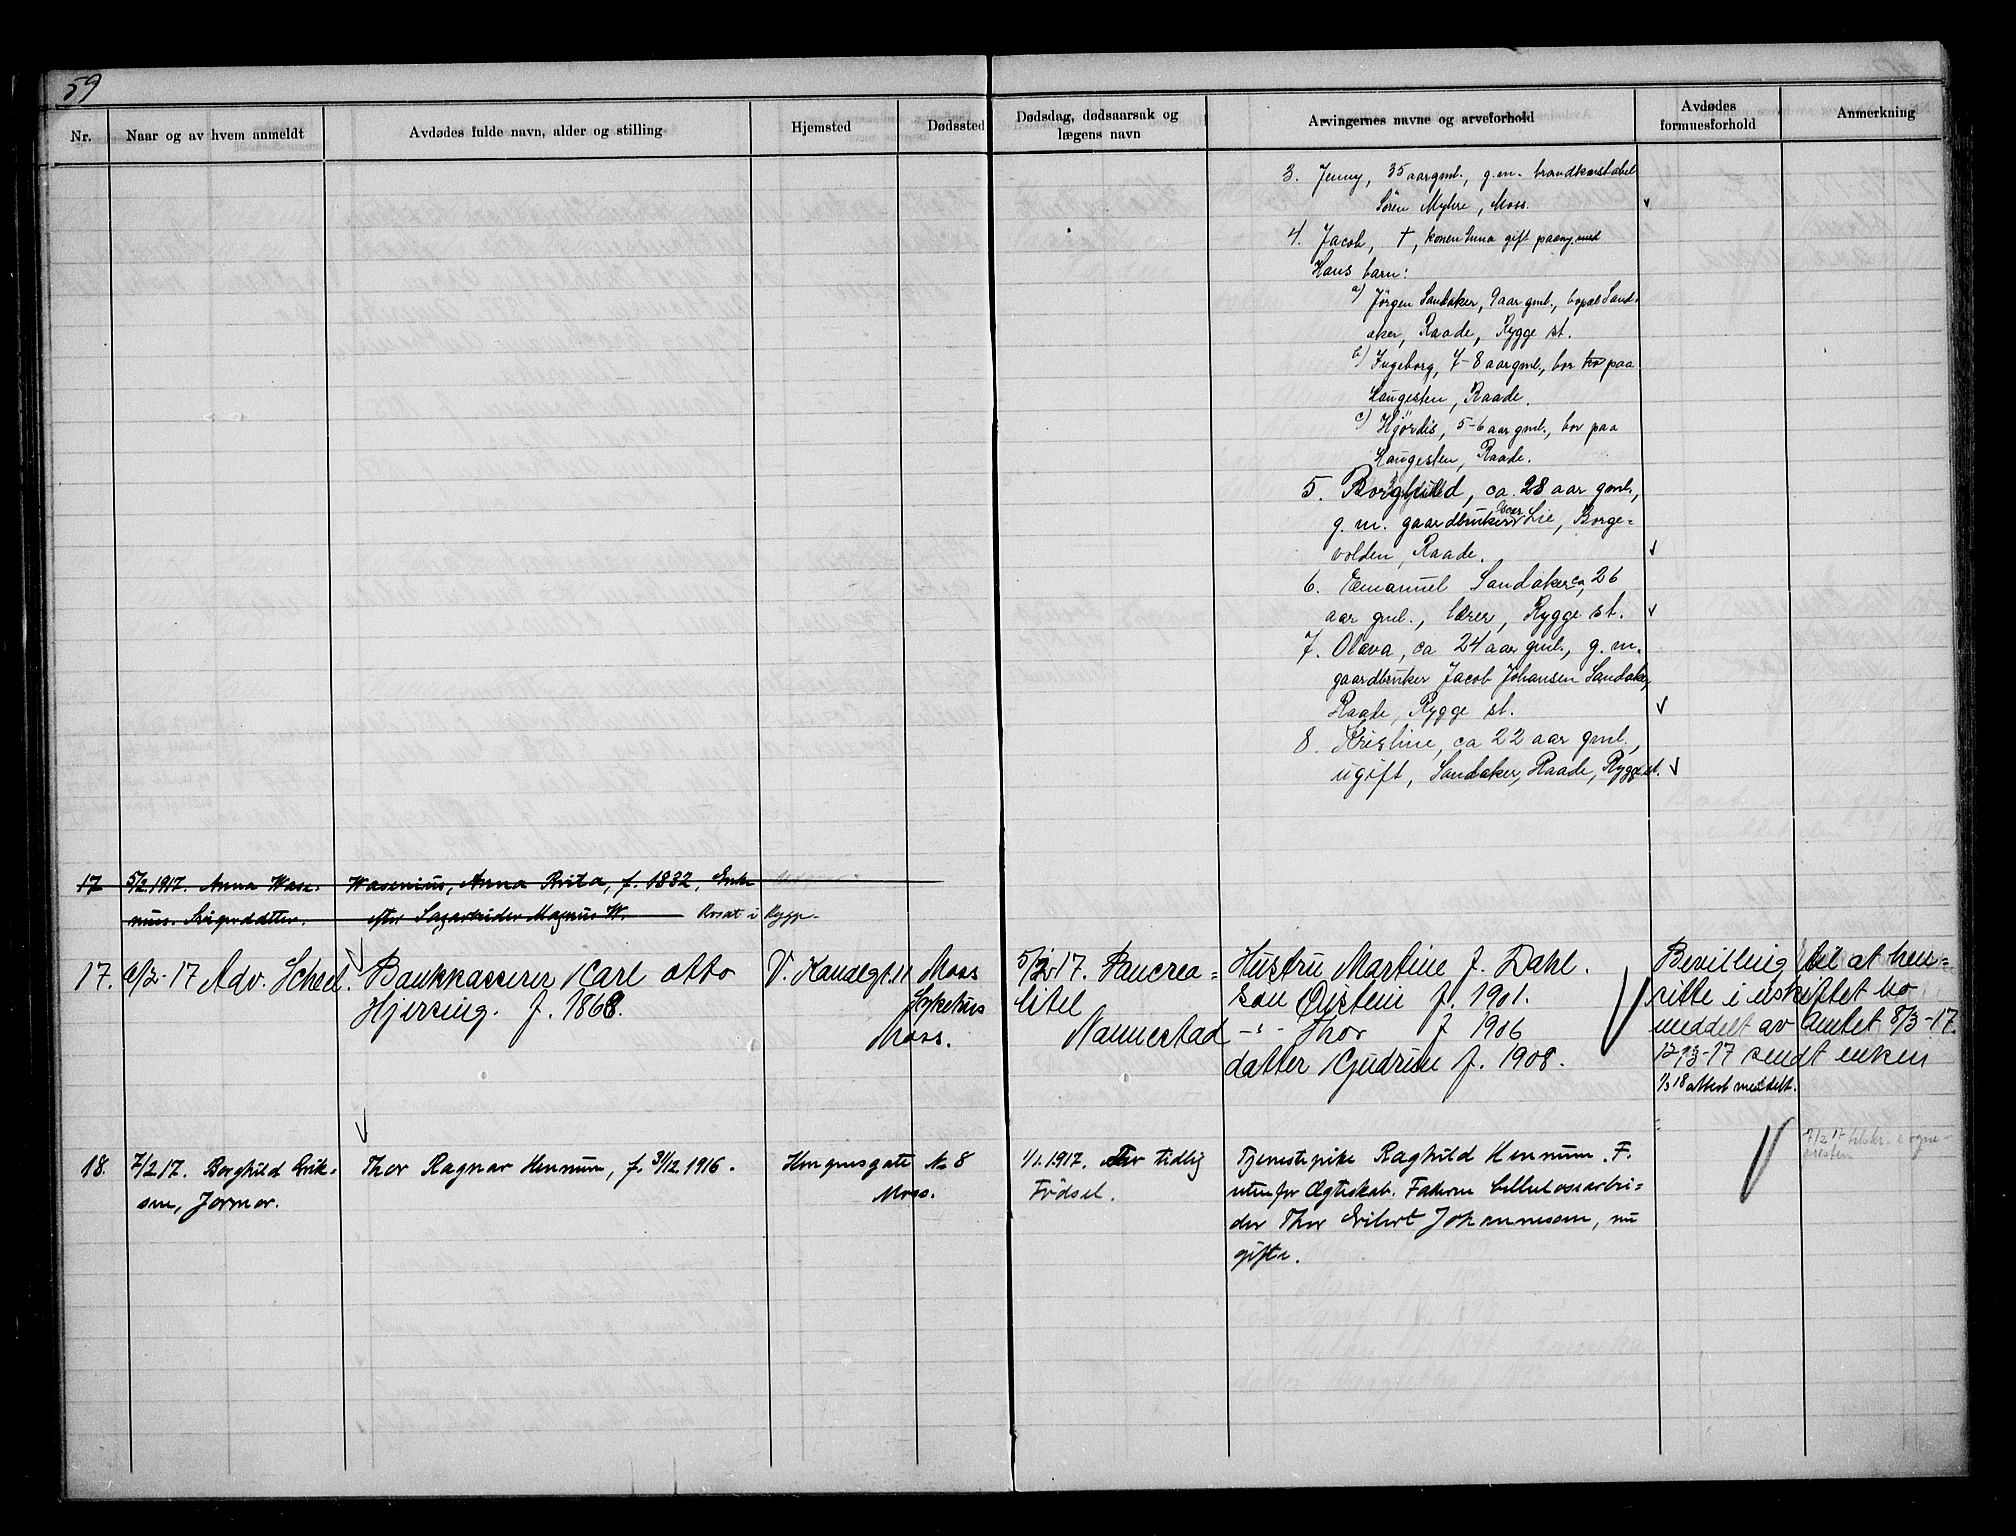 59
Nr.
Naar og av hvem anmeldt
Avdødes fulde navn, alder og stilling
Hjemsted
Dødssted
Dødsdag, dødsaarsak og
lægens navn
Arvingernes navne og arveforhold
Avdødes
formuesforhold
Anmerkning
3. Jenny, 35 aar gml., g.m. brandkonstabel
Sören Myhre, Moss.
4. Jacob, †, konen Anna gift paany med
Hans barn:
a) Jörgen Sandaker, 9 aar gml., bopæl Sand-
aker, Raade, Rygge st.
b) Ingeborg, 7-8 aar gml., bor hos paa
Haugesten, Raade.
c) Hjördis, 5-6 aar gml., bor paa
Haugesten, Raade.
5. Borghild, ca. 28 aar gml.,
g. m. gaardbruker Oscar Lie, Borge-
volden, Raade.
6. Emanuel Sandaker, ca 26
aar gml., lærer, Rygge st.
7. Olava, ca 24 aar gml., g. m.
gaardbruker Jacob Johansen Sandaker,
Raade, Rygge st.
8. Kristine, ca 22 aar gml.,
ugift, Sandaker, Raade, Rygge st.
17 5/2 1917. Anna Wase- Wasenius, Anna Brita, f. 1832, Enke
nius. Svigerdatter. efter Sagarbeider Magnus W. Bosat i Rygge.
17. 6/2-17 Adv. Scheel. Bankkasserer Karl Otto V. Kanalgt. 11 Moss 5/2-17. Pancrea- Hustru Martine f. Dahl. Bevilling til at hen-
Hjersing. f. 1868. Sykehus titel Søn Øistein f. 1901. sitte i uskiftet bo
Moss. Nannestad -"- Thor f 1906 meddelt av Amtet 8/3-17.
datter Gudrun f. 1908. 12/3-17 sendt enken
1/3 18 attest meddelt.
18. 7/2 17. Borghild Erik- Thor Ragnar Hennum, f. 31/12 1916. Kongensgate No 8 1/1. 1917. For tidlig Tjenestepike Raghild Hennum. F. 7/2 17 tilskr. sogne-
sen, Jormor. Moss. Födsel. utenfor Ægteskab. Faderen cellulosearbei- presten
der Thor Eilert Johannesen, nu
gifte.